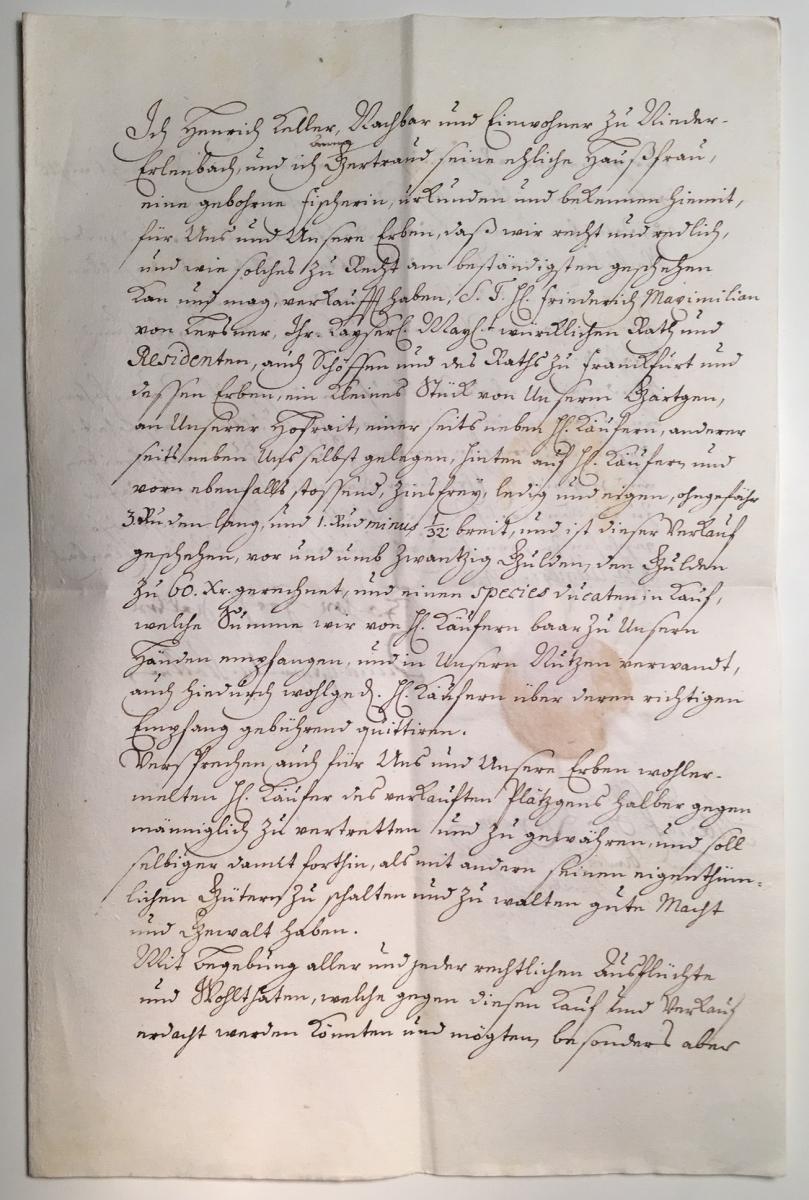 Ich Henrich Keller, Nachbar und Einwohner zu Nieder-
Erlenbach, und ich Gertraud, seine ehliche Haußfrau,
eine gebohrne Fischerin, urkunden und bekennen hiemit,
für Uns und Unsere Erben, daß wir recht und redlich,
und wie solches zu Recht am beständigsten geschehen
kan und mag, verkaufft haben, S. T. H. Friederich Maximilian
von Lersner, Ihr. Kayserl. May. würcklichen Rath und
Residenten, auch Schöffen und des Raths zu Franckfurt und
dessen Erben, ein kleines Stück von Unserm Gärtgen,
an Unserer Hofrait, einer seits neben H. Käufern, anderer
seits neben Uns selbst gelegen, hinten auf H. Käufern und
vorn ebenfalls stossend, zinsfrey, ledig und eigen, ohngefähr
3. Ruden lang, und 1. Rud minus 1/32 breit, und ist dieser Verkauf
geschehen, vor und umb zwantzig Gulden, den Gulden
zu 60. Xr. gerechnet, und einen species ducaten in Kauf,
welche Summe wir von H. Käufern baar zu Unsern
Händen empfangen, und in Unsern Nutzen verwandt,
auch hiedurch wohlged. H. Käufern über deren richtigen
Empfang gebührend quittiren.
Versprechen auch für Uns und Unsere Erben wohler-
melten H. Käufer des verkauften Plätzgens halber gegen
männiglich zu vertretten und zu gewähren, und soll
selbiger damit forthin, als mit andern seinen eigenthüm-
lichen Gütern zu schalten und zu walten gute Macht
und Gewalt haben.
Mit Begebung aller und jeder rechtlichen Ausflüchte
und Wohlthaten, welche gegen diesen Kauf und Verkauf
erdacht werden könnten und mögten, besonders aber